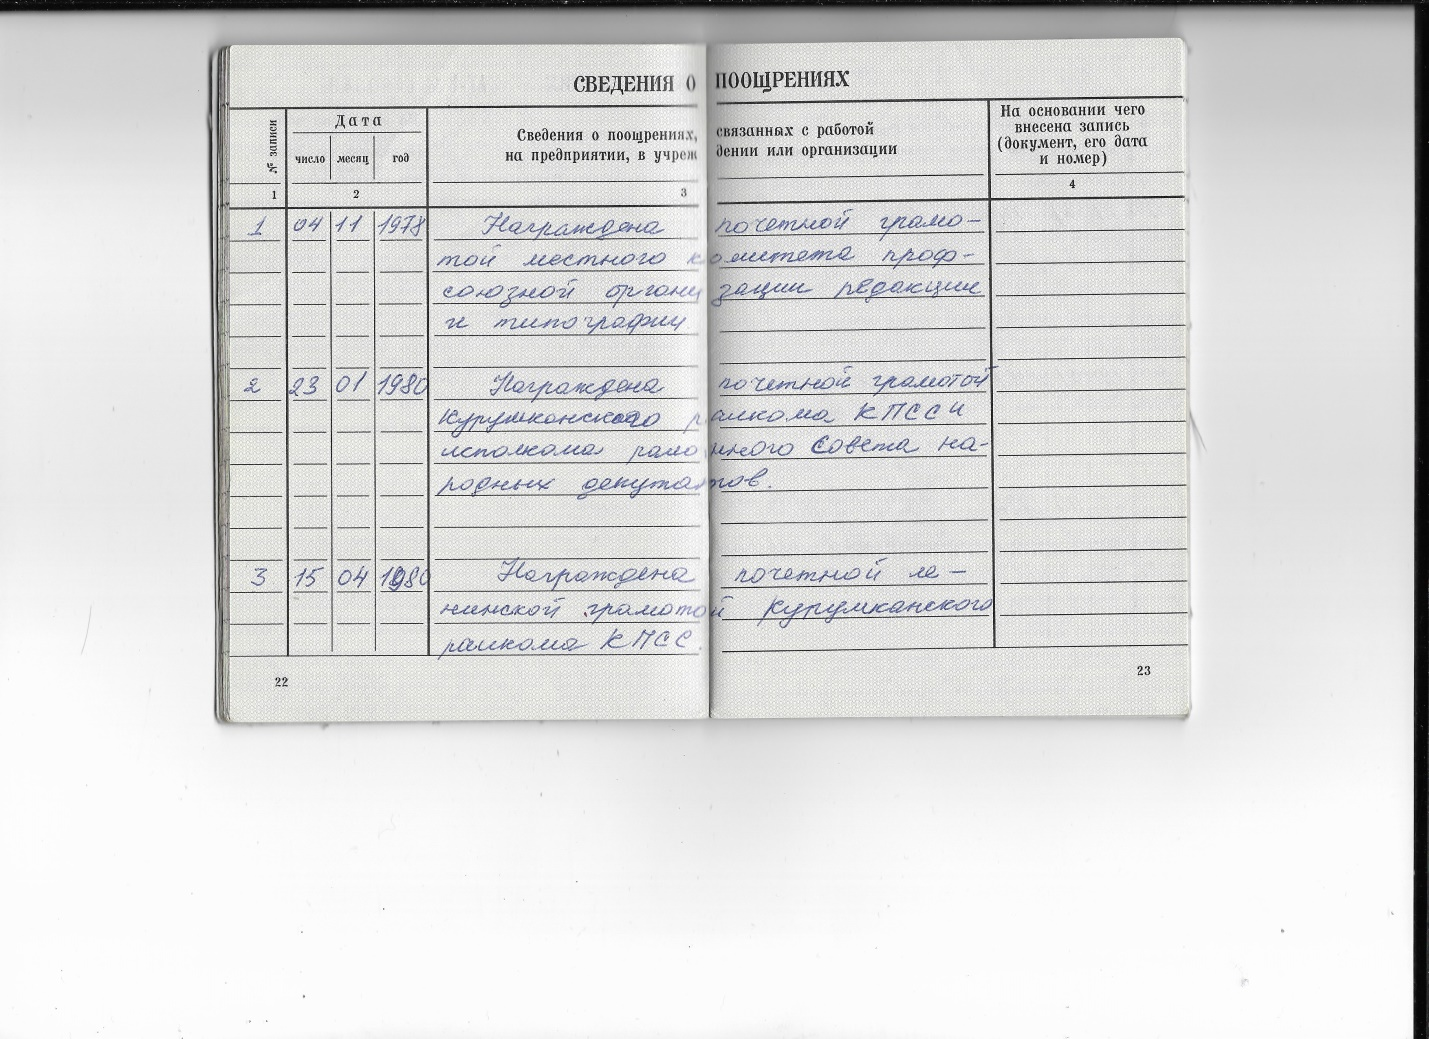 СВЕДЕНИЯ О ПООЩРЕНИЯХ
№ записи
Дата
число месяц год
Сведения о поощрениях, связанных с работой
на предприятии, в учреждении или организации
На основании чего
внесена запись
(документ, его дата
и номер)
1 2 3 4
1 04 11 1978 Награждена почетной грамо-
той местного комитета проф-
союзной организации редакции
и типографии
2 23 01 1980 Награждена почетной грамотой
Курумканского райкома КПСС и
исполкома районного Совета на-
родных депутатов.
3 15 04 1980 Награждена почетной ле-
нинской грамотой Курумканского
райкома КПСС.
22 23